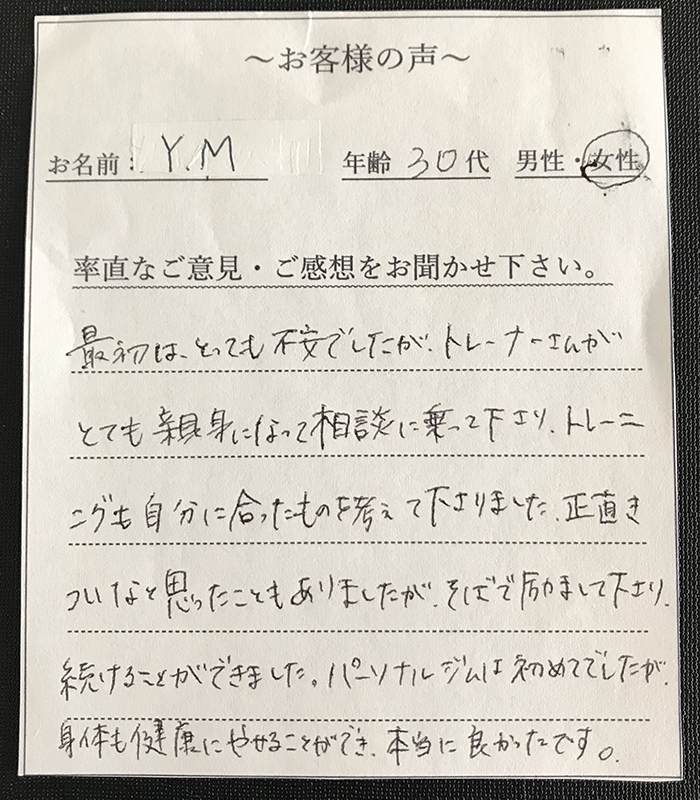 〜お客様の声〜
お名前：Y.M 年齢 30代 男性・女性
率直なご意見・ご感想をお聞かせ下さい。
最初は、とっても不安でしたが、トレーナーさんが
とても親身になって相談に乗って下さり、トレーニ
ニグも自分に合ったものを考えて下さりました。正直き
ついなと思ったこともありましたが、そばで励まして下さり、
続けることができました。パーソナルジムは初めてでしたが、
身体も健康にやせることができ、本当に良かったです。